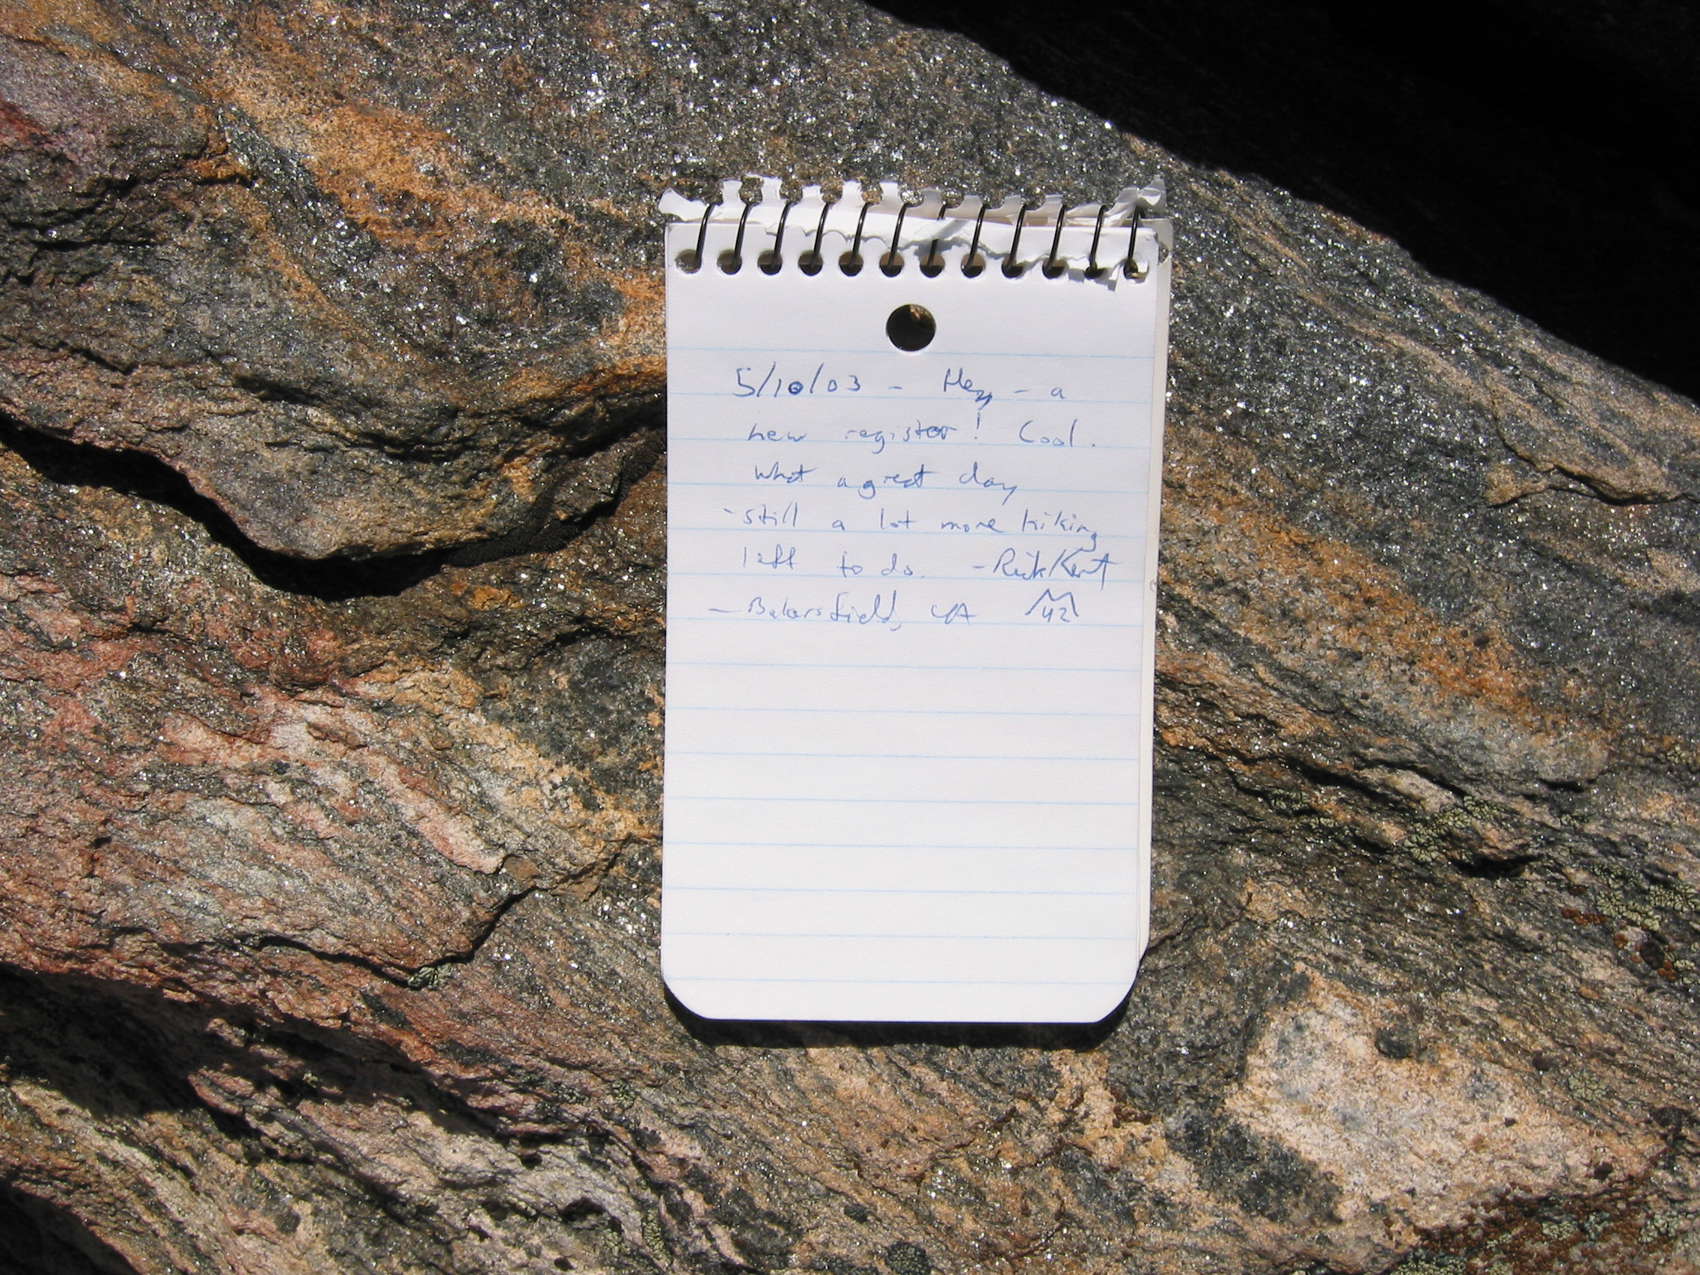 5/10/03 - Hey - a
new register! Cool.
What a great day
-still a lot more hiking
left to do. -Rick Kent
-Bakersfield, CA 42